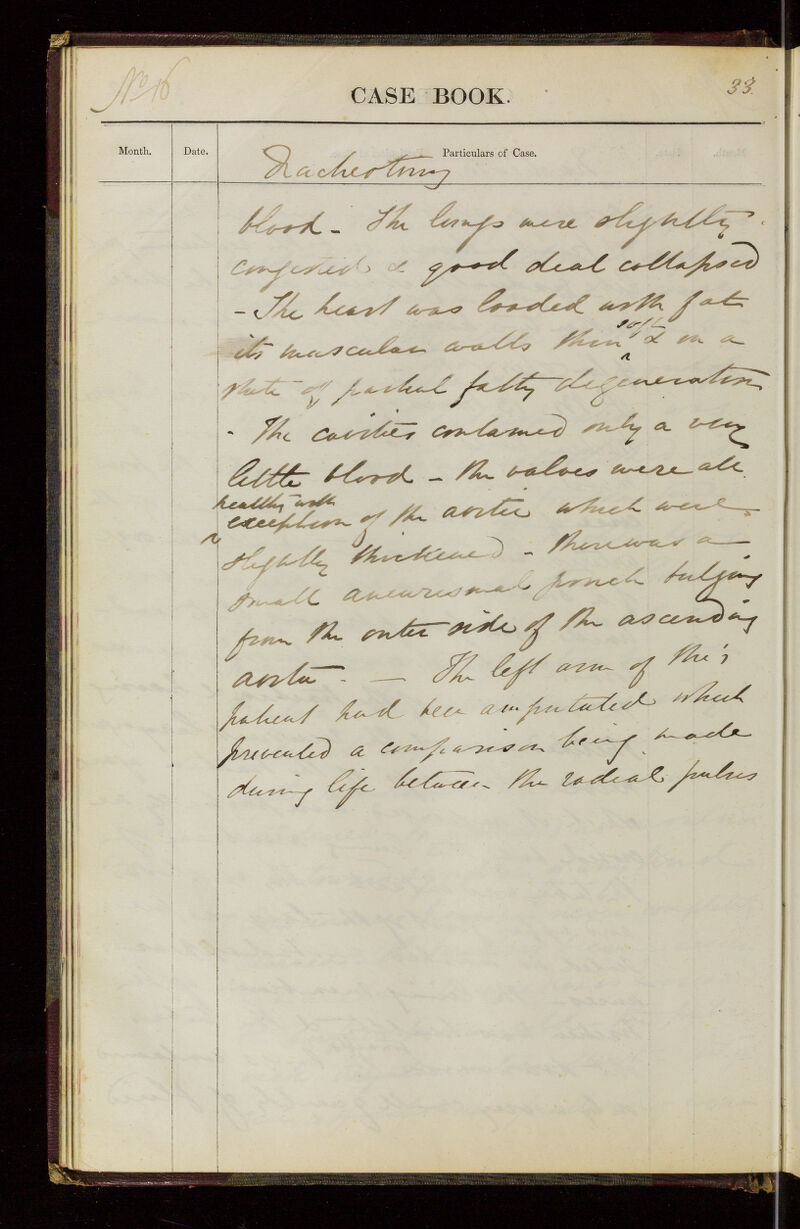 No 16
CASE BOOK.
33.
Month.
Date.
Particulars of Case.
Tracheotomy
blood - The lungs were slightly
congested & good deal collapsed
- The heart was loaded with fat
its muscular walls thin soft & in a
state of partial fatty degeneration
- The cavities contained only a very
little blood - the valves were all
healthy with
exception of the aortic which were
slightly thickened - there was a
small aneurismal pouch bulging
from the outer side of the ascending
aorta - — The left arm of this
patient had been amputated which
prevented a comparison being made
during life between the radial pulses